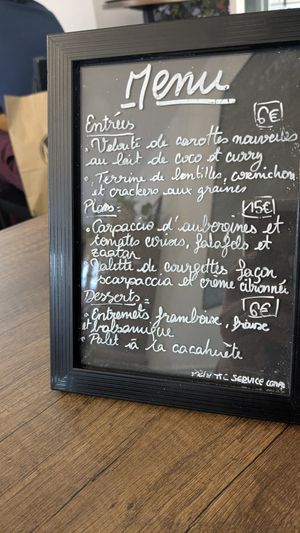 Menu
Entrées 6€
• Velouté de carottes nouvelles
au lait de coco et curry
• Terrine de lentilles, cornichon
et crackers aux graines
Plats: 15€
• Carpaccio d'aubergines et
tomates cerises, falafels et
zaatar
• Galette de courgettes façon
scarpaccia et crème citronnée
Desserts: 6€
• Entremets framboise, fraise
et balsamique
• Palet à la cacahuète
PRIX TTC SERVICE compris